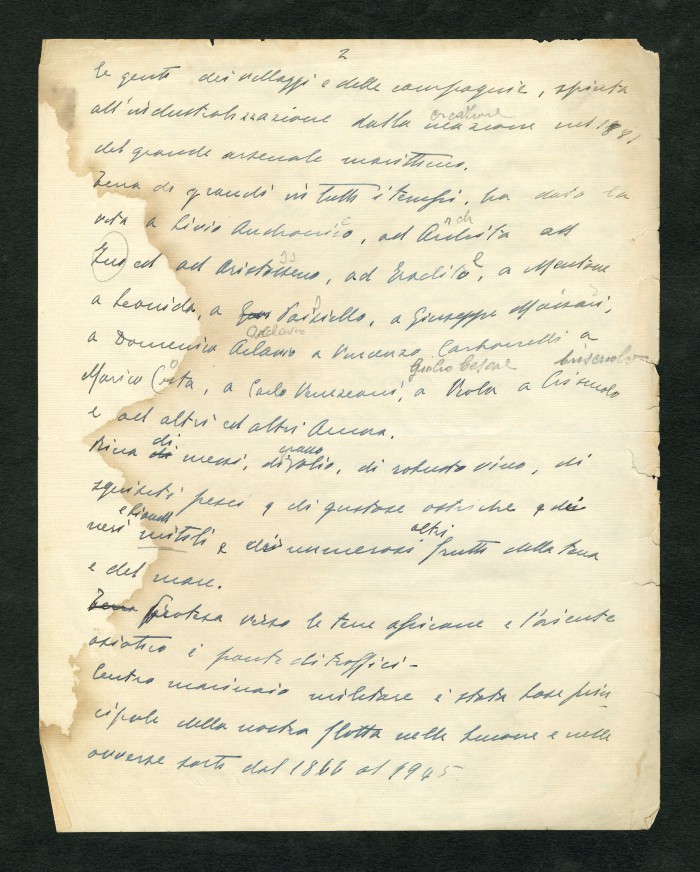 2
le genti dei villaggi e delle campagne, spinta
all'industrializzazione dalla creazione nel 1881
del grande arsenale marittimo.
Terra di grandi in tutti i tempi, ha dato la
vita a Livio Andronico, ad Archita ad
ed ad Aristosseno, ad Eraclito, a
a Leonida, a Paisiello, a Giuseppe Massari,
a Domenico Acclavio a Vincenzo Carbonelli a
Mario Costa, a Carlo a Giulio Cesare Viola a Criscuolo
e ad altri ed altri ancora.
Ricca di messi, di grano di olio, di robusto vino, di
squisiti pesci e di gustose ostriche e dei
neri mitili e dei numerosi altri frutti della terra
e del mare.
Protesa verso le terre africane e l'oriente
asiatico è ponte di traffici -
Centro marinaio militare è stata base prin
cipale della nostra flotta nelle buone e nelle
avverse sorti dal 1866 al 1945